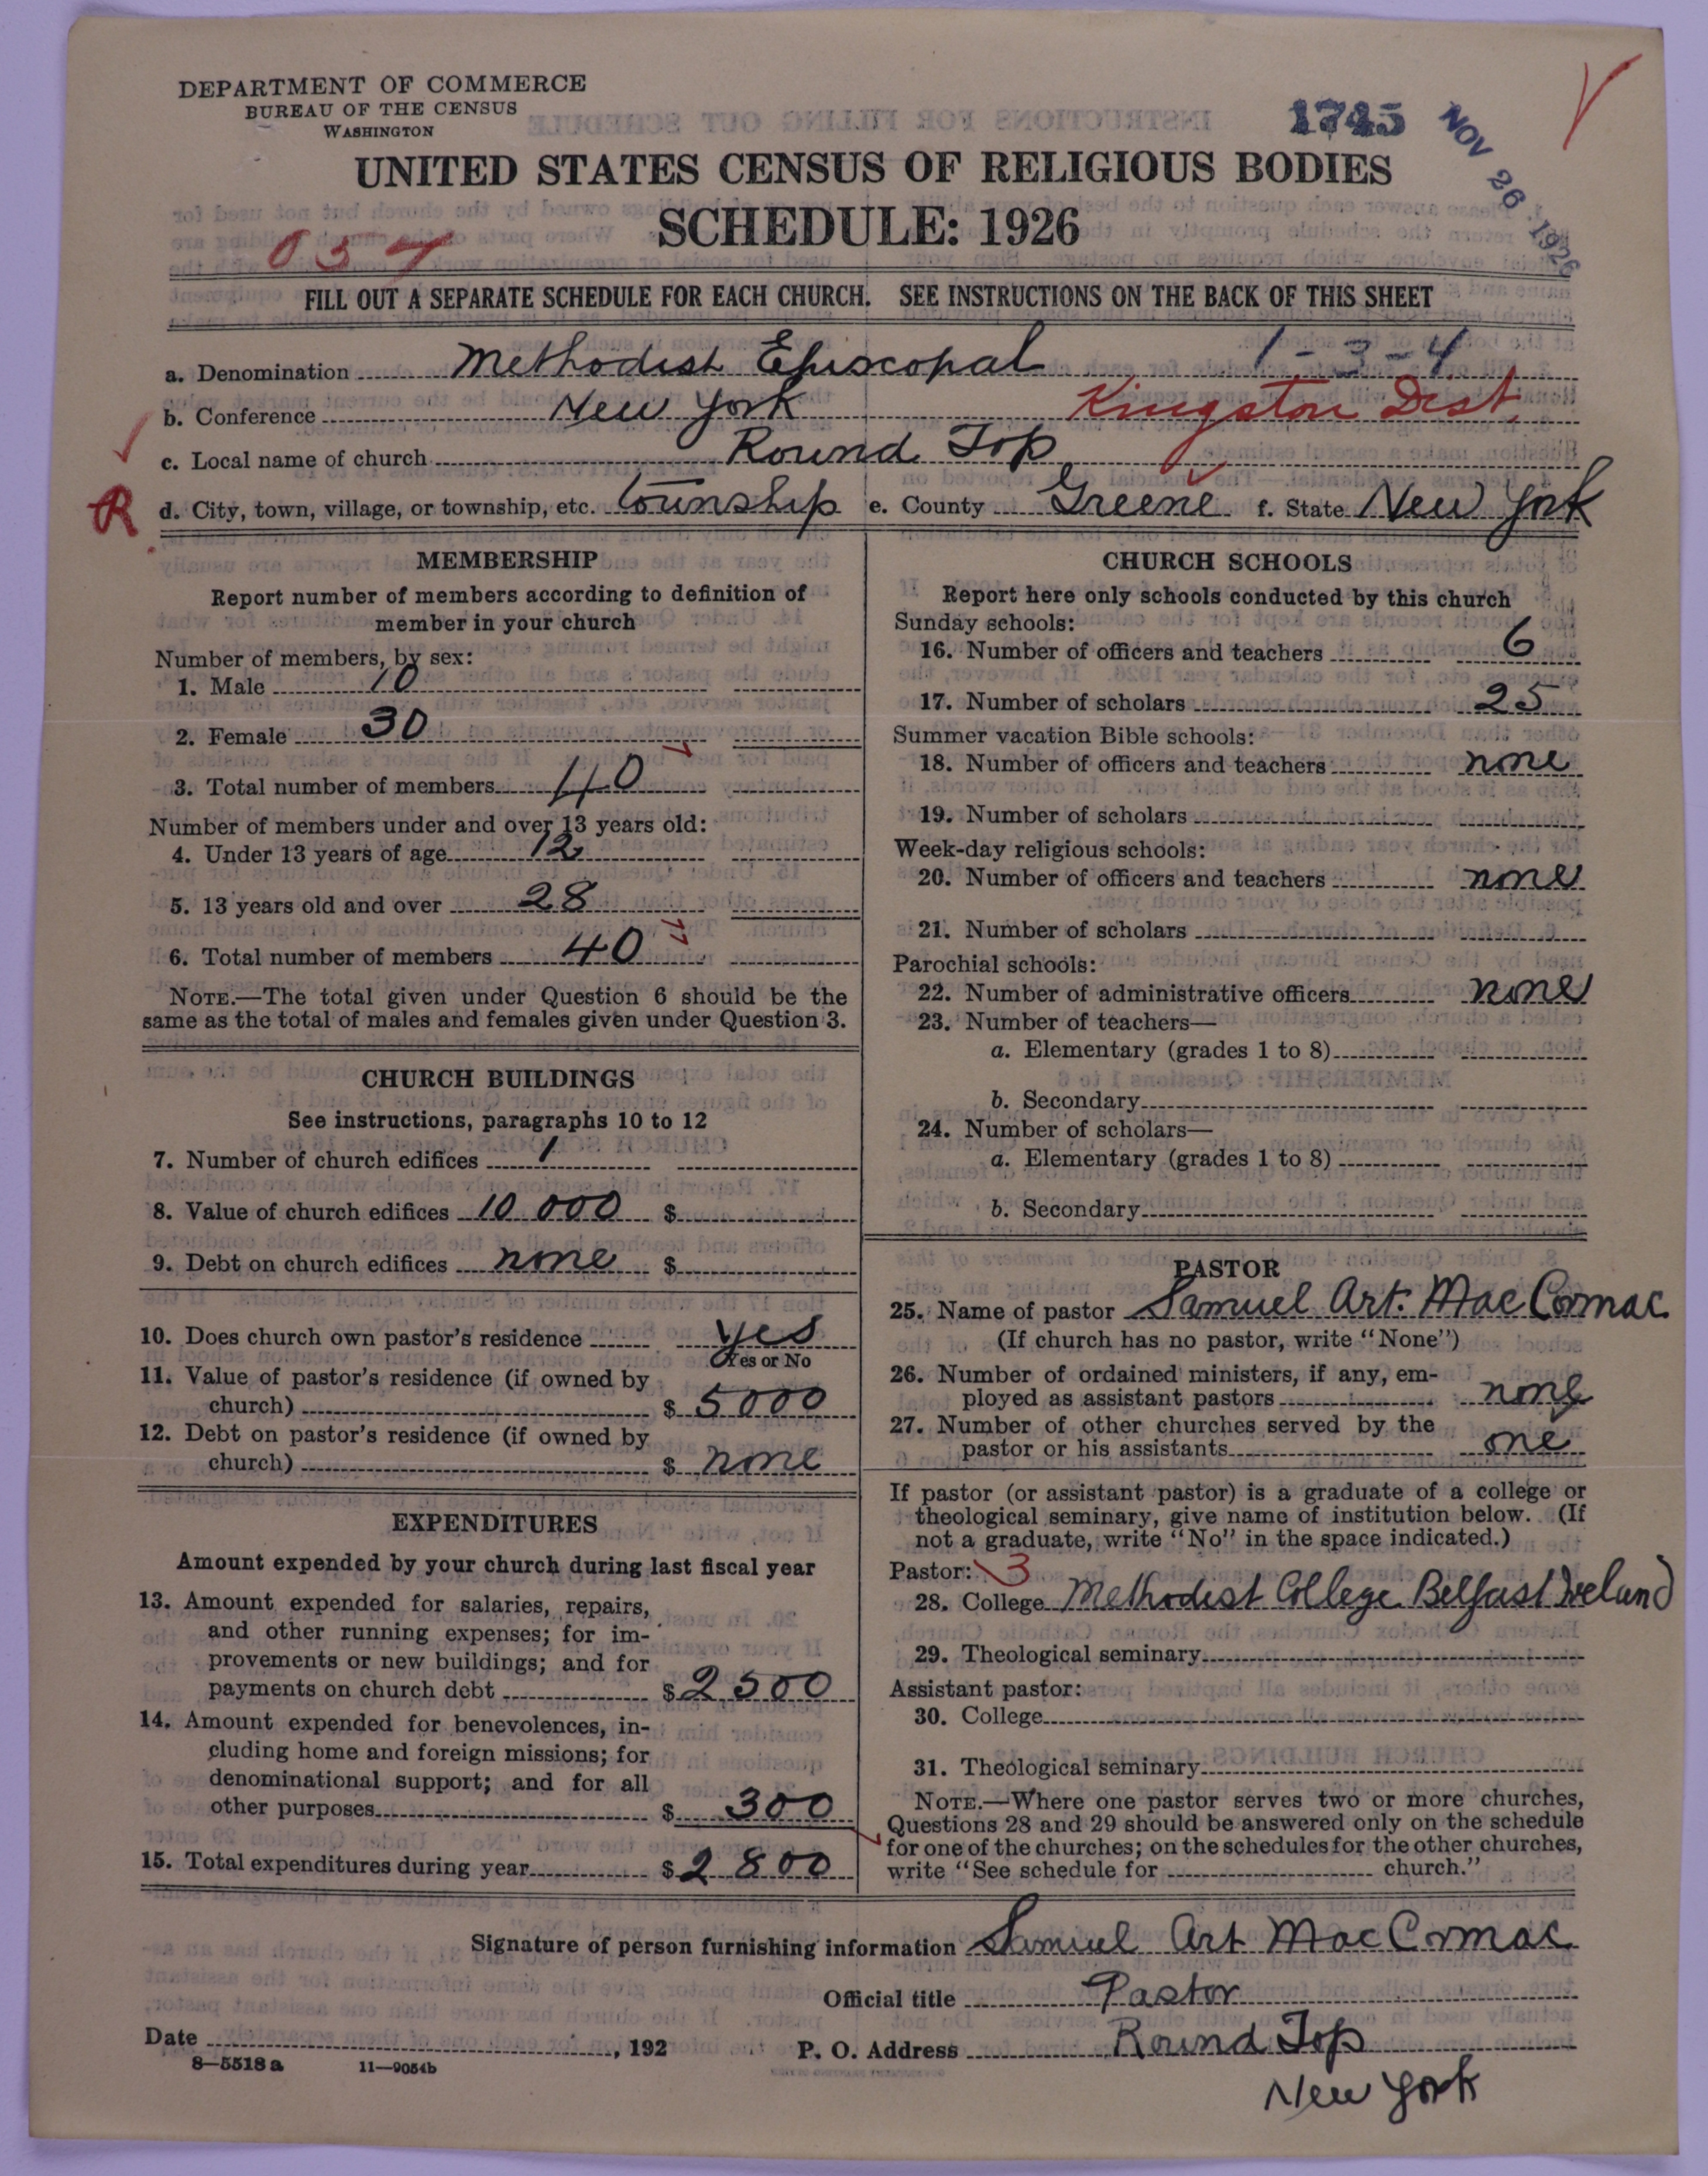 DEPARTMENT OF COMMERCE
BUREAU OF THE CENSUS
WASHINGTON
1745
NOV 26 1926
UNITED STATES CENSUS OF RELIGIOUS BODIES
SCHEDULE: 1926
037
FILL OUT A SEPARATE SCHEDULE FOR EACH CHURCH. SEE INSTRUCTIONS ON THE BACK OF THIS SHEET
a. Denomination Methodist Episcopal 1-3-4
b. Conference New York Kingston Dist.
c. Local name of church Round Top
R d. City, town, village, or township, etc. township e. County Greene f. State New York
MEMBERSHIP
Report number of members according to definition of
member in your church
Number of members, by sex:
1. Male 10
2. Female 30
3. Total number of members 40
Number of members under and over 13 years old:
4. Under 13 years of age 12
5. 13 years old and over 28
6. Total number of members 40
NOTE.—The total given under Question 6 should be the
same as the total of males and females given under Question 3.
CHURCH BUILDINGS
See instructions, paragraphs 10 to 12
7. Number of church edifices 1
8. Value of church edifices 10 000 $
9. Debt on church edifices none $
10. Does church own pastor's residence yes
Yes or No
11. Value of pastor's residence (if owned by
church) $ 5000
12. Debt on pastor's residence (if owned by
church) $ none
EXPENDITURES
Amount expended by your church during last fiscal year
13. Amount expended for salaries, repairs,
and other running expenses; for im-
provements or new buildings; and for
payments on church debt $ 2500
14. Amount expended for benevolences, in-
cluding home and foreign missions; for
denominational support; and for all
other purposes $ 300
15. Total expenditures during year $ 2800
CHURCH SCHOOLS
Report here only schools conducted by this church
Sunday schools:
16. Number of officers and teachers 6
17. Number of scholars 25
Summer vacation Bible schools:
18. Number of officers and teachers none
19. Number of scholars
Week-day religious schools:
20. Number of officers and teachers none
21. Number of scholars
Parochial schools:
22. Number of administrative officers none
23. Number of teachers—
a. Elementary (grades 1 to 8)
b. Secondary
24. Number of scholars—
a. Elementary (grades 1 to 8)
b. Secondary
PASTOR
25. Name of pastor Samuel Art. Mac Cormac
(If church has no pastor, write "None")
26. Number of ordained ministers, if any, em-
ployed as assistant pastors none
27. Number of other churches served by the
pastor or his assistants one
If pastor (or assistant pastor) is a graduate of a college or
theological seminary, give name of institution below. (If
not a graduate, write "No" in the space indicated.)
Pastor: 3
28. College Methodist College Belfast Ireland
29. Theological seminary
Assistant pastor:
30. College
31. Theological seminary
NOTE.—Where one pastor serves two or more churches,
Questions 28 and 29 should be answered only on the schedule
for one of the churches; on the schedules for the other churches,
write "See schedule for church."
Signature of person furnishing information Samuel Art Mac Cormac
Official title Pastor
Date , 192 P. O. Address Round Top
New York
8—5518a 11—9054b